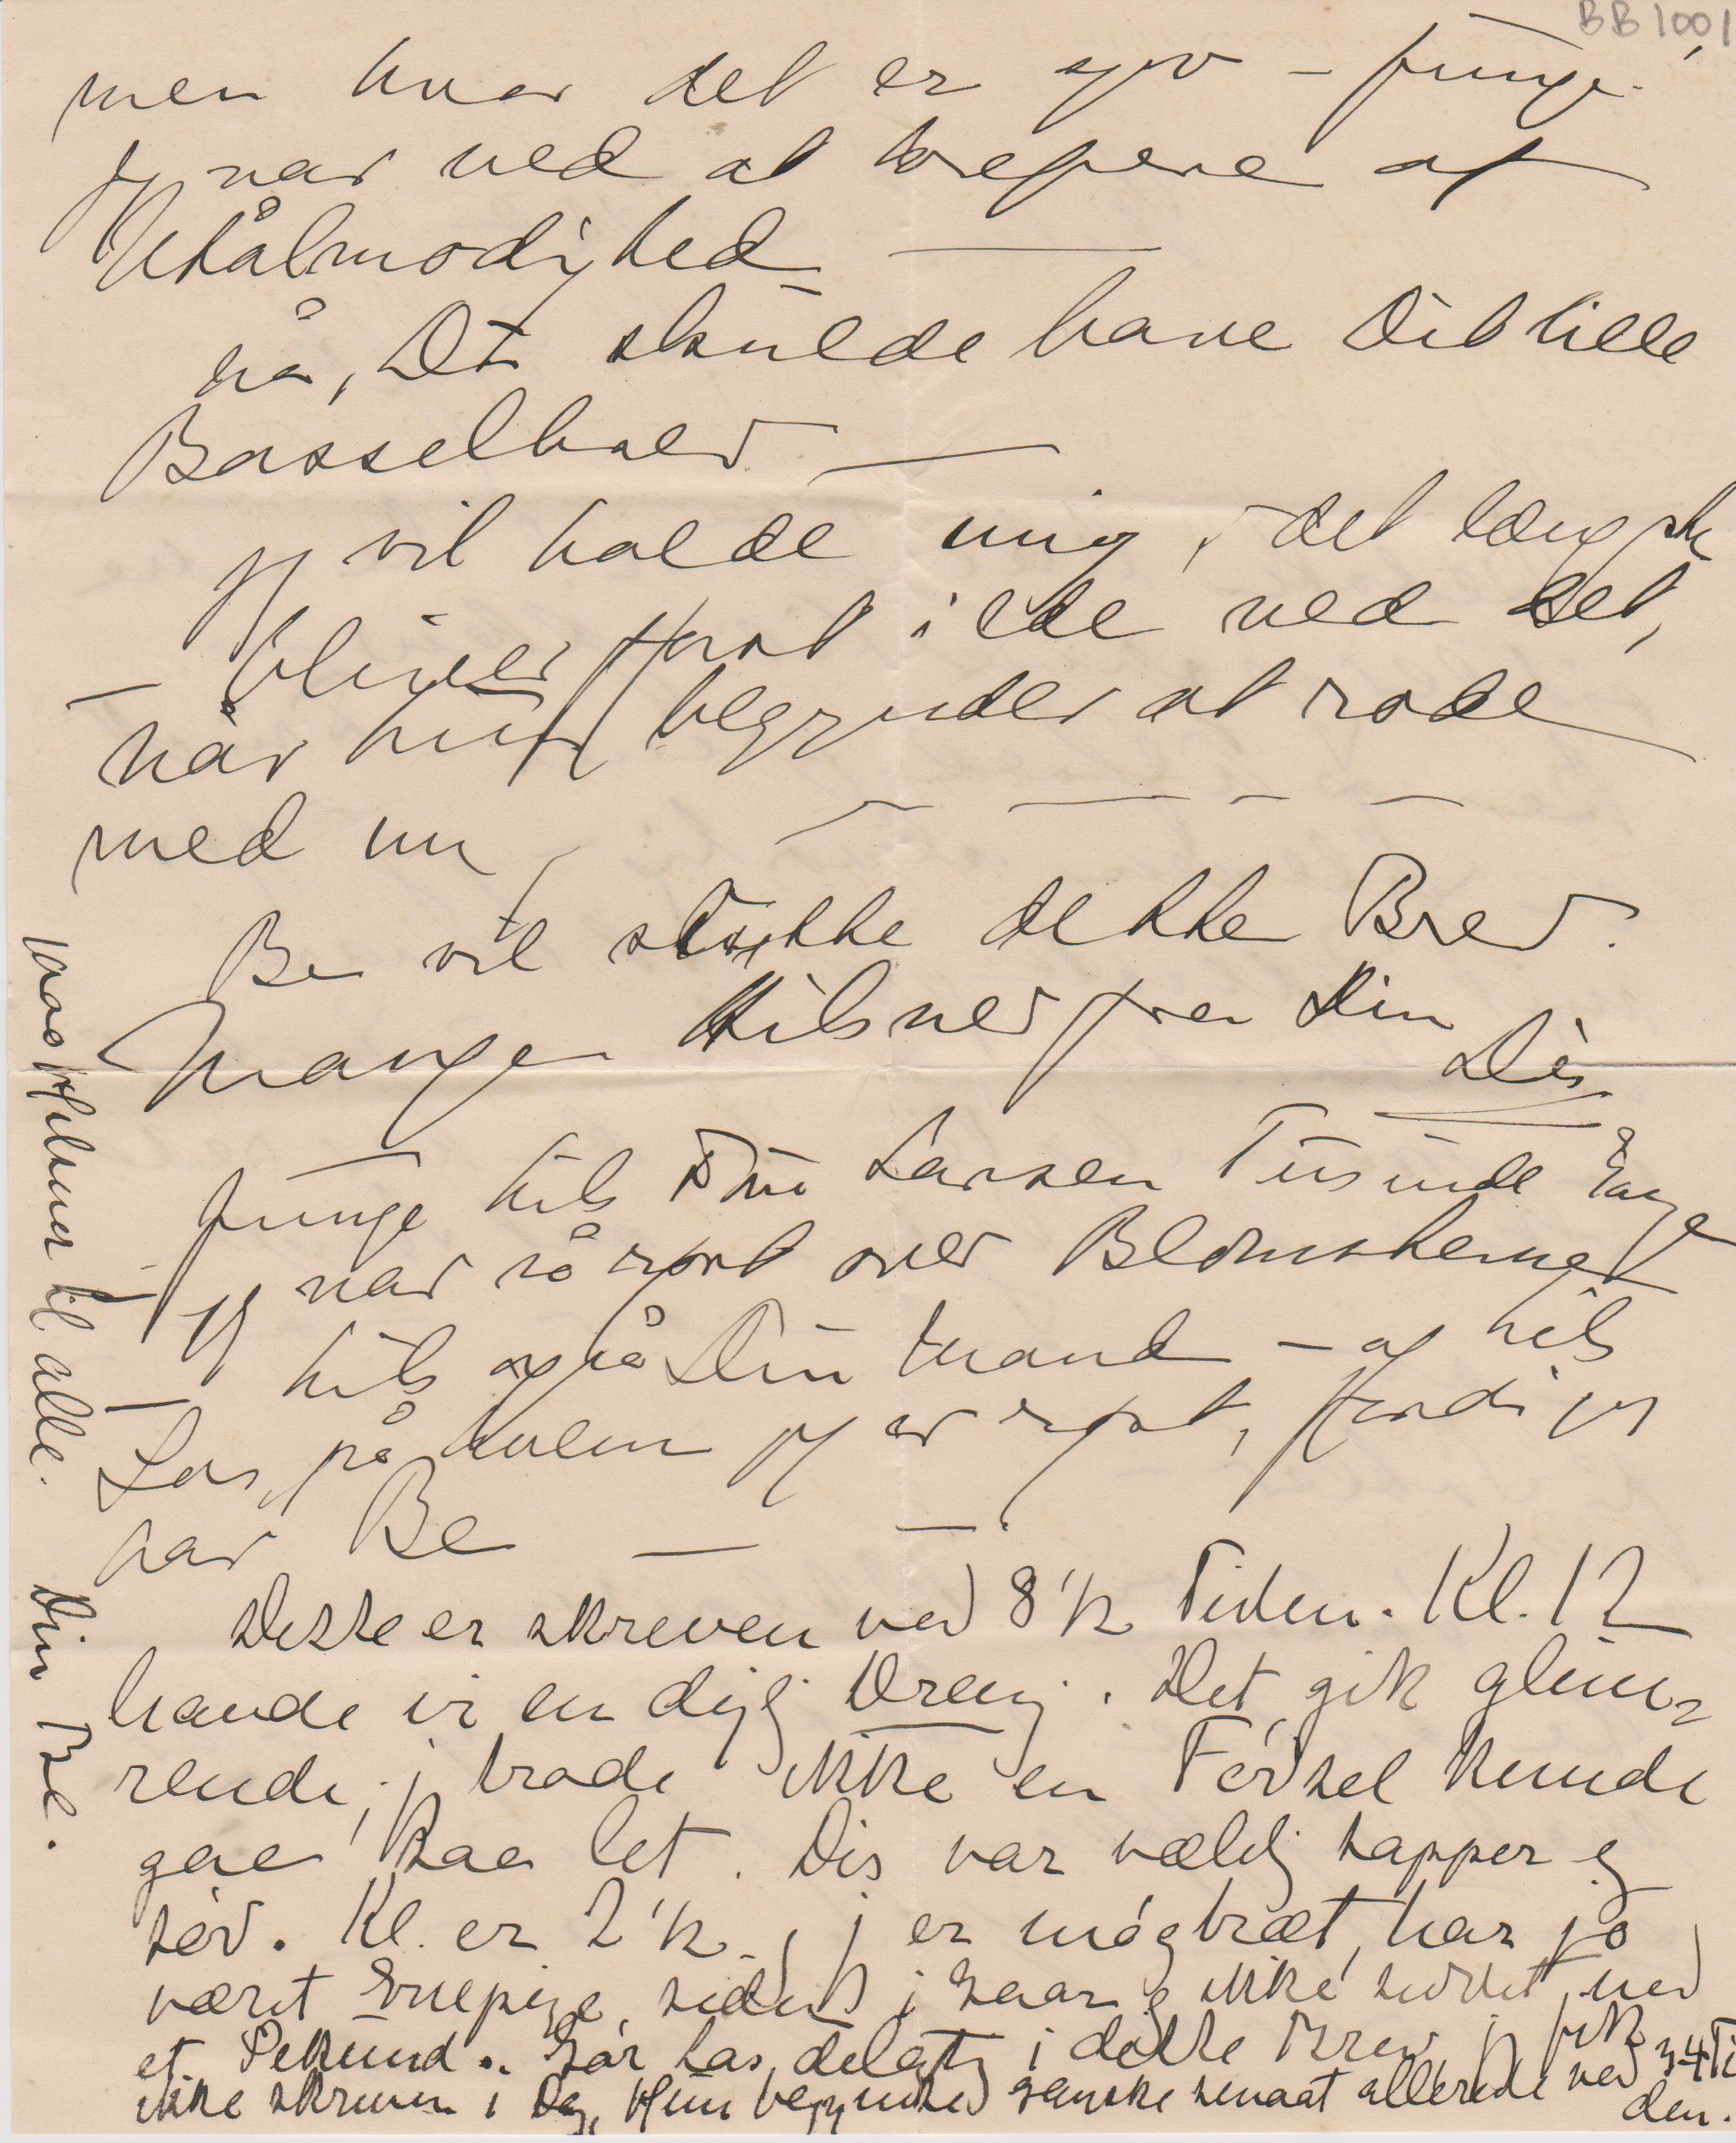 BB1001
men hvor det er sjov – Junge!
Jeg var ved at krepere af
Utålmodighed –
nå, Du skulde have Dit lille
Basselbarn –
Jeg vil holde mig i det længste
– bliver først ilde ved det,
når hun begynder at rode
med mig – – – –
Be vil slutte dette Brev.
Mange Hilsner fra Din
Dis
Junge hils Din Larsen Tusinde Gange
– Jeg var så rørt over Blomsterne!
– hils også Din Mand – og hils
Las, på hvem jeg er rørt, fordi jeg
har Be – –
Dette er skreven ved 8½ Tiden. Kl. 12
havde vi en dejlig Dreng. Det gik glim-
rende; j. troede ikke en Fødsel kunde
gaae saa let. Dis var vældig tapper og
sød. Kl. er 2½. j er møgtræt, har jo
været Enepige siden i Gaar og ikke siddet ned
et Sekund. Gør Las delagtig i dette Brev j fik
ikke skreven i Dag, Hun begyndte ganske smaat allerede ved 3-4 Ti
den.
Hilsner til alle.
Din Be.